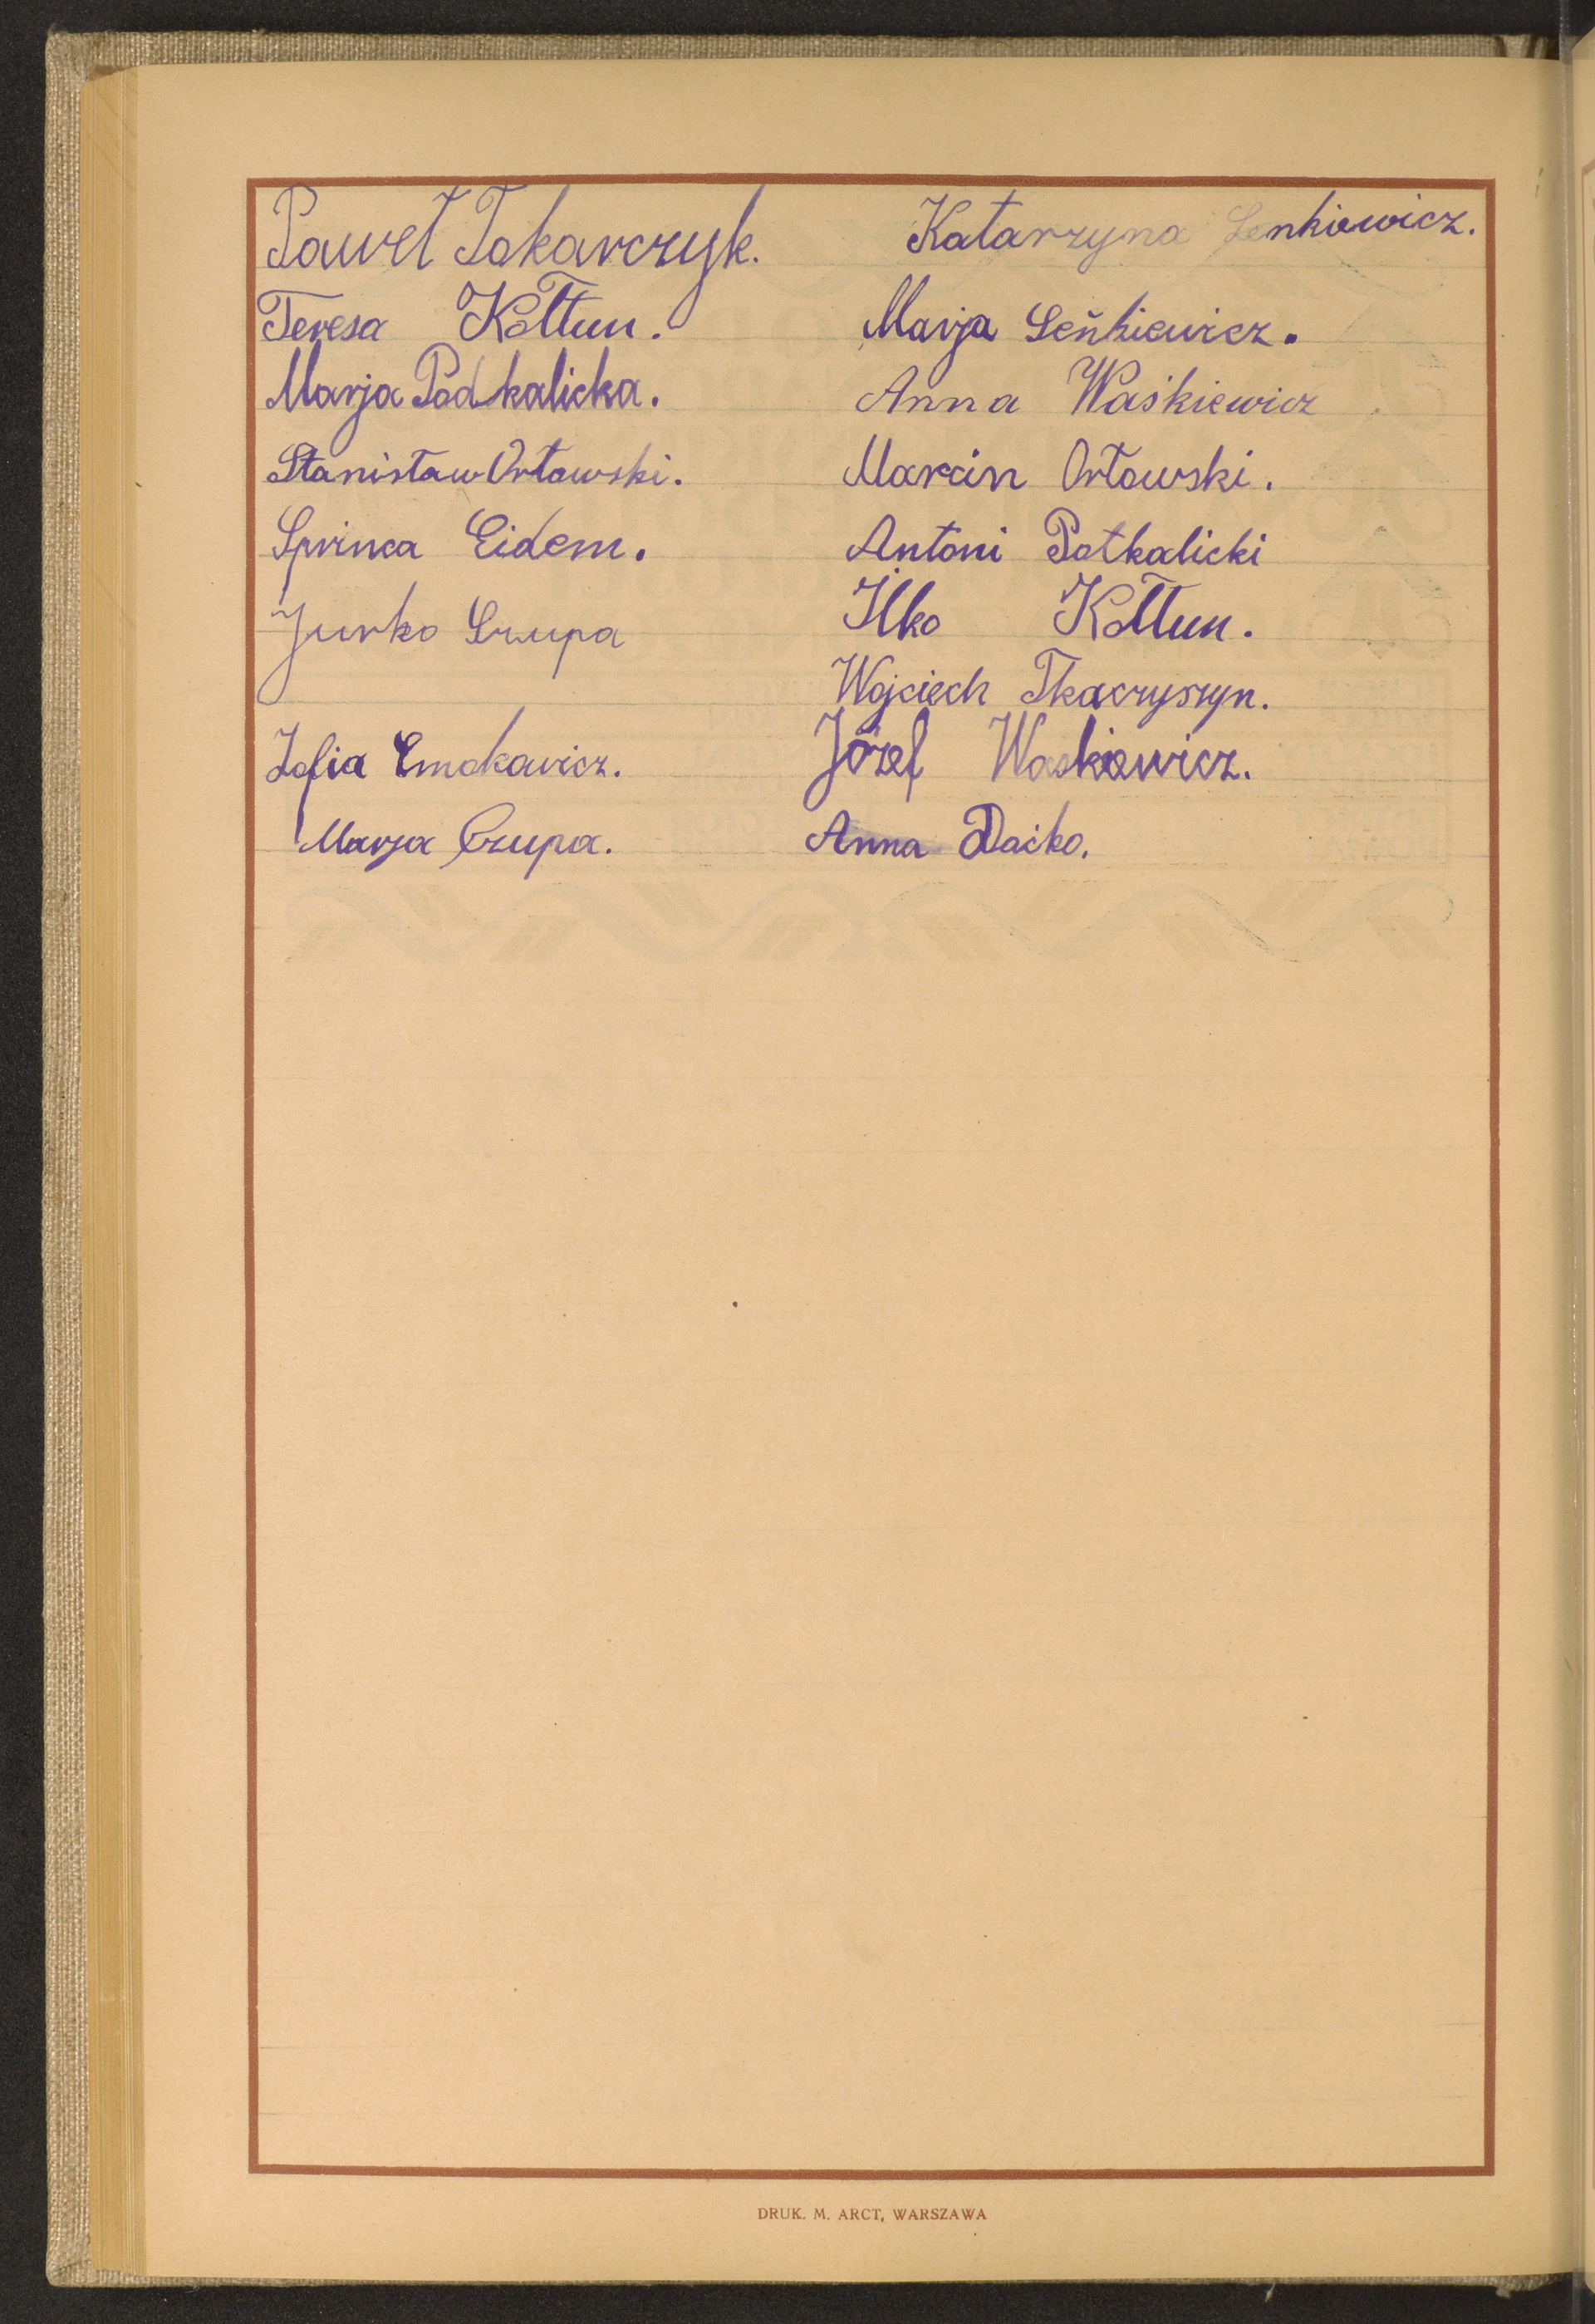 Paweł Tokarczyk.
Teresa Kołtun.
Marja Podkalicka.
Stanisław Orłowski.
Sprinca Eidem.
Jurko Czupa
Zofia Cmokawicz.
Marja Czupa.
Katarzyna Lenkiewicz.
Marja Leńkiewicz.
Anna Waśkiewicz
Marcin Orłowski.
Antoni Potkalicki
Ilko Kołtun.
Wojciech Tkaczyszyn.
Józef Waskiewicz.
Anna Daćko.
DRUK. M. ARCT, WARSZAWA